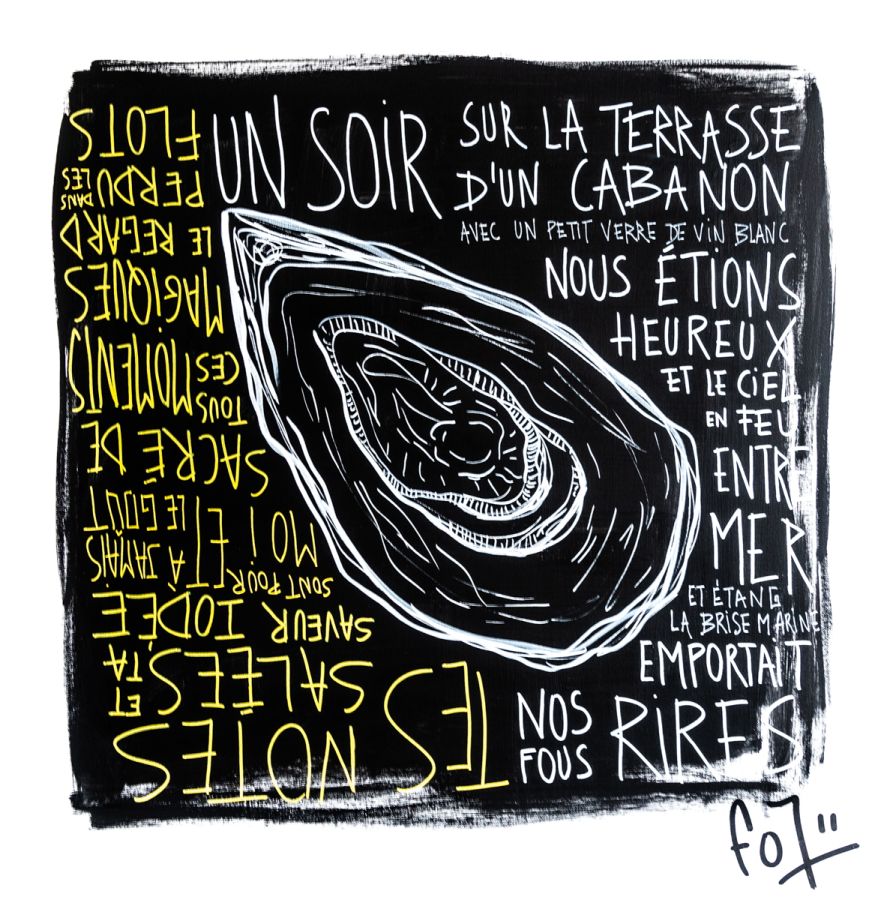 UN SOIR
SUR LA TERRASSE
D'UN CABANON
AVEC UN PETIT VERRE DE VIN BLANC
NOUS ÉTIONS
HEUREUX
ET LE CIEL
EN FEU
ENTRE
MER
ET ÉTANG
LA BRISE MARINE
EMPORTAIT
NOS
FOUS
RIRES
TES NOTES
SALÉES,
ET TA
SAVEUR IODÉE
SONT POUR
MOI
À JAMAIS
ET LE GOÛT
SACRÉ DE
TOUS
CES MOMENTS
MAGIQUES
LE REGARD
PERDU DANS LES
FLOTS